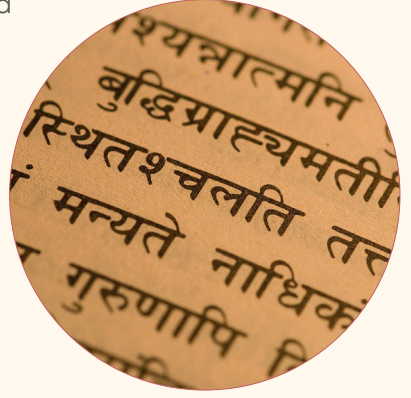 श्यन्नात्मनि
बुद्धिग्राह्यमती
स्थितश्चलति तत्त
मन्यते नाधिकं
गुरुणापि